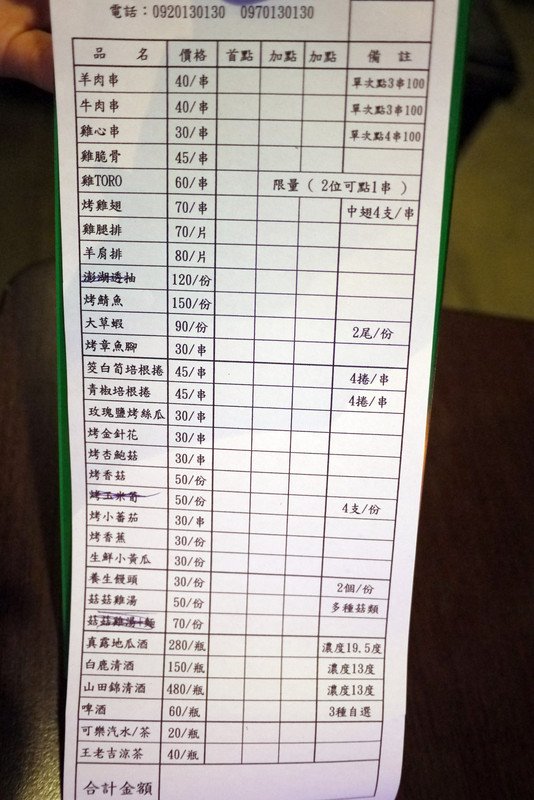 電話：0920130130 0970130130
品 名 價格 首點 加點 加點 備 註
羊肉串 40/串 單次點3串100
牛肉串 40/串 單次點3串100
雞心串 30/串 單次點4串100
雞脆骨 45/串
雞TORO 60/串 限量（2位可點1串）
烤雞翅 70/串 中翅4支/串
雞腿排 70/片
羊肩排 80/片
澎湖透抽 120/份
烤鯖魚 150/份
大草蝦 90/份 2尾/份
烤章魚腳 30/串
茭白筍培根捲 45/串 4捲/串
青椒培根捲 45/串 4捲/串
玫瑰鹽烤絲瓜 30/串
烤金針花 30/串
烤杏鮑菇 30/串
烤香菇 50/份
烤玉米筍 50/份 4支/份
烤小蕃茄 30/串
烤香蕉 30/份
生鮮小黃瓜 30/份
養生饅頭 30/份 2個/份
菇菇雞湯 50/份 多種菇類
菇菇雞湯+麵 70/份
真露地瓜酒 280/瓶 濃度19.5度
白鹿清酒 150/瓶 濃度13度
山田錦清酒 480/瓶 濃度13度
啤酒 60/瓶 3種自選
可樂汽水/茶 20/瓶
王老吉涼茶 40/瓶
合計金額